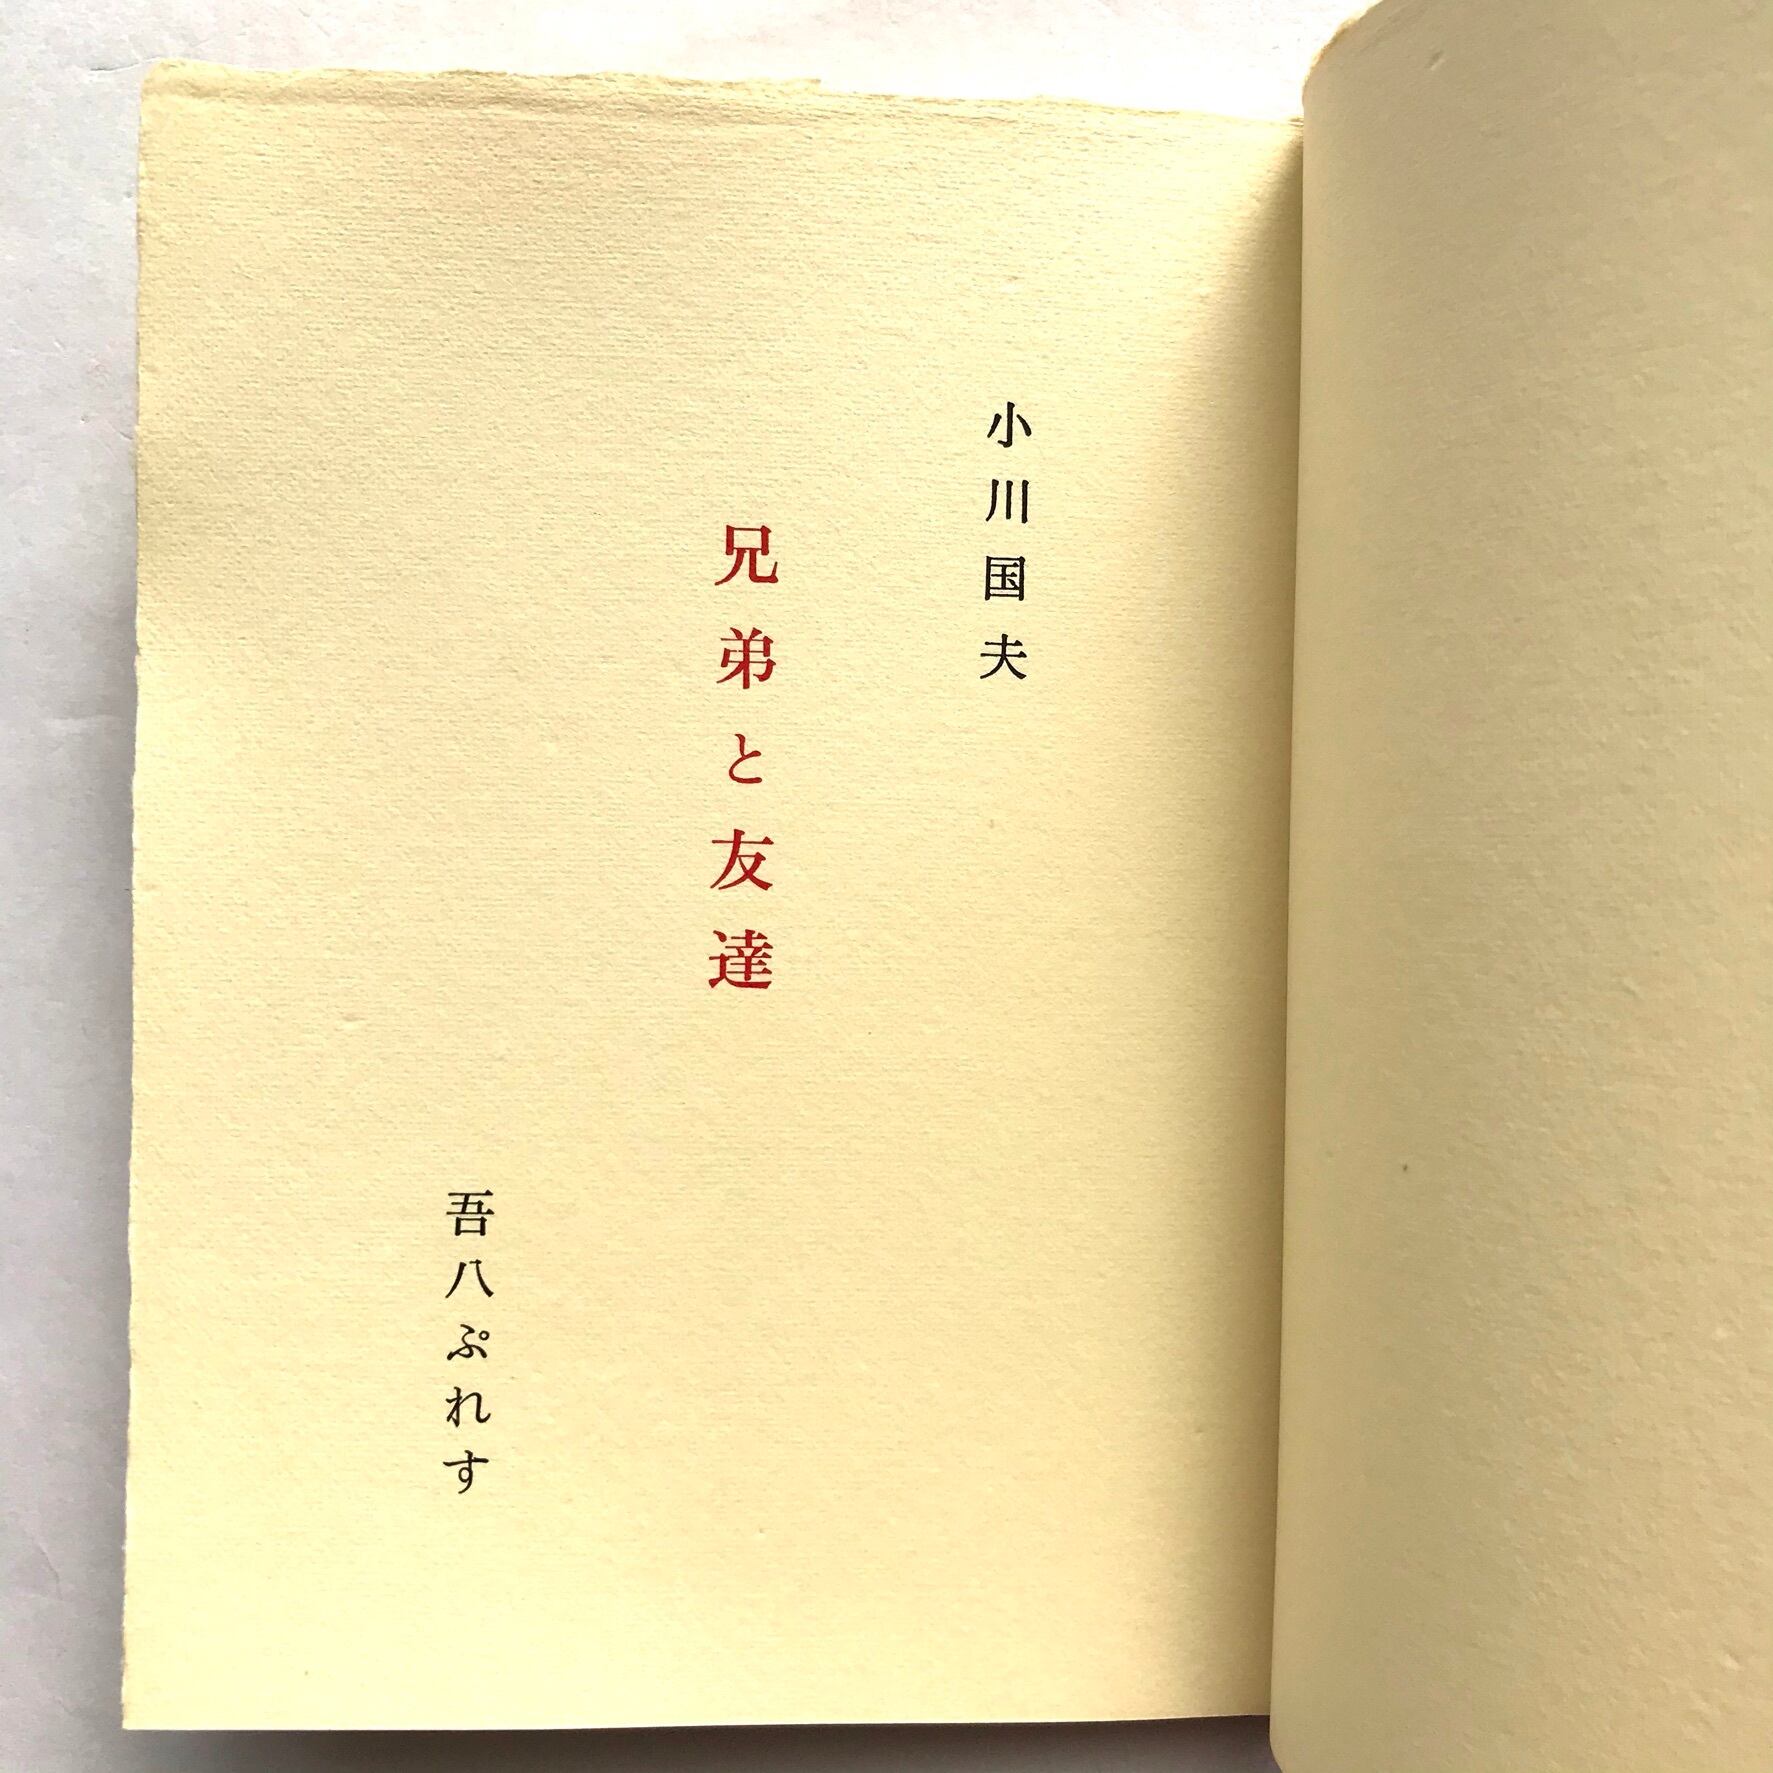 小川国夫
兄弟と友達
吾八ぷれす